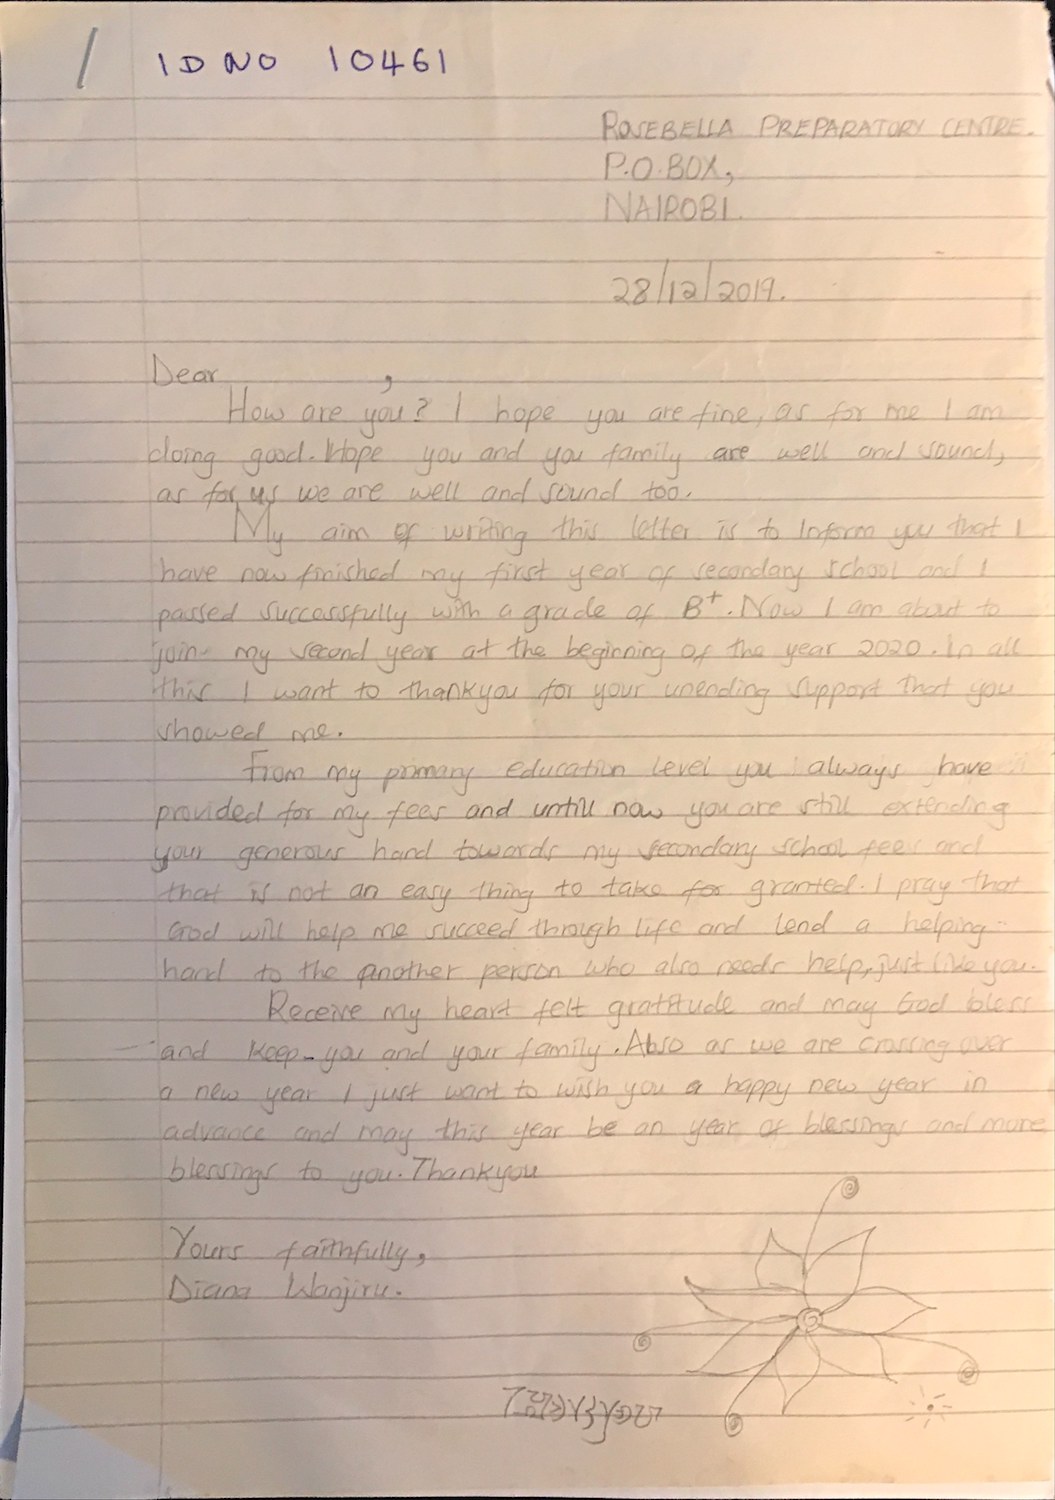 ID NO 10461
ROSEBELLA PREPARATORY CENTRE.
P.O.BOX,
NAIROBI.
28/12/2019.
Dear ,
How are you? I hope you are fine, as for me I am
doing good. Hope you and you family are well and sound,
as for us we are well and sound too.
My aim of writing this letter is to Inform you that I
have now finished my first year of secondary school and I
passed successfully with a grade of B+. Now I am about to
join my second year at the beginning of the year 2020. In all
this I want to thankyou for your unending support that you
showed me.
From my primary education level you always have
provided for my fees and untill now you are still extending
your generous hand towards my secondary school fees and
that is not an easy thing to take for granted. I pray that
God will help me succeed through life and lend a helping
hand to the another person who also needs help, just like you.
Receive my heart felt gratitude and may God bless
and keep you and your family. Also as we are crossing over
a new year I just want to wish you a happy new year in
advance and may this year be an year of blessings and more
blessings to you. Thankyou
Yours faithfully,
Diana Wanjiru.